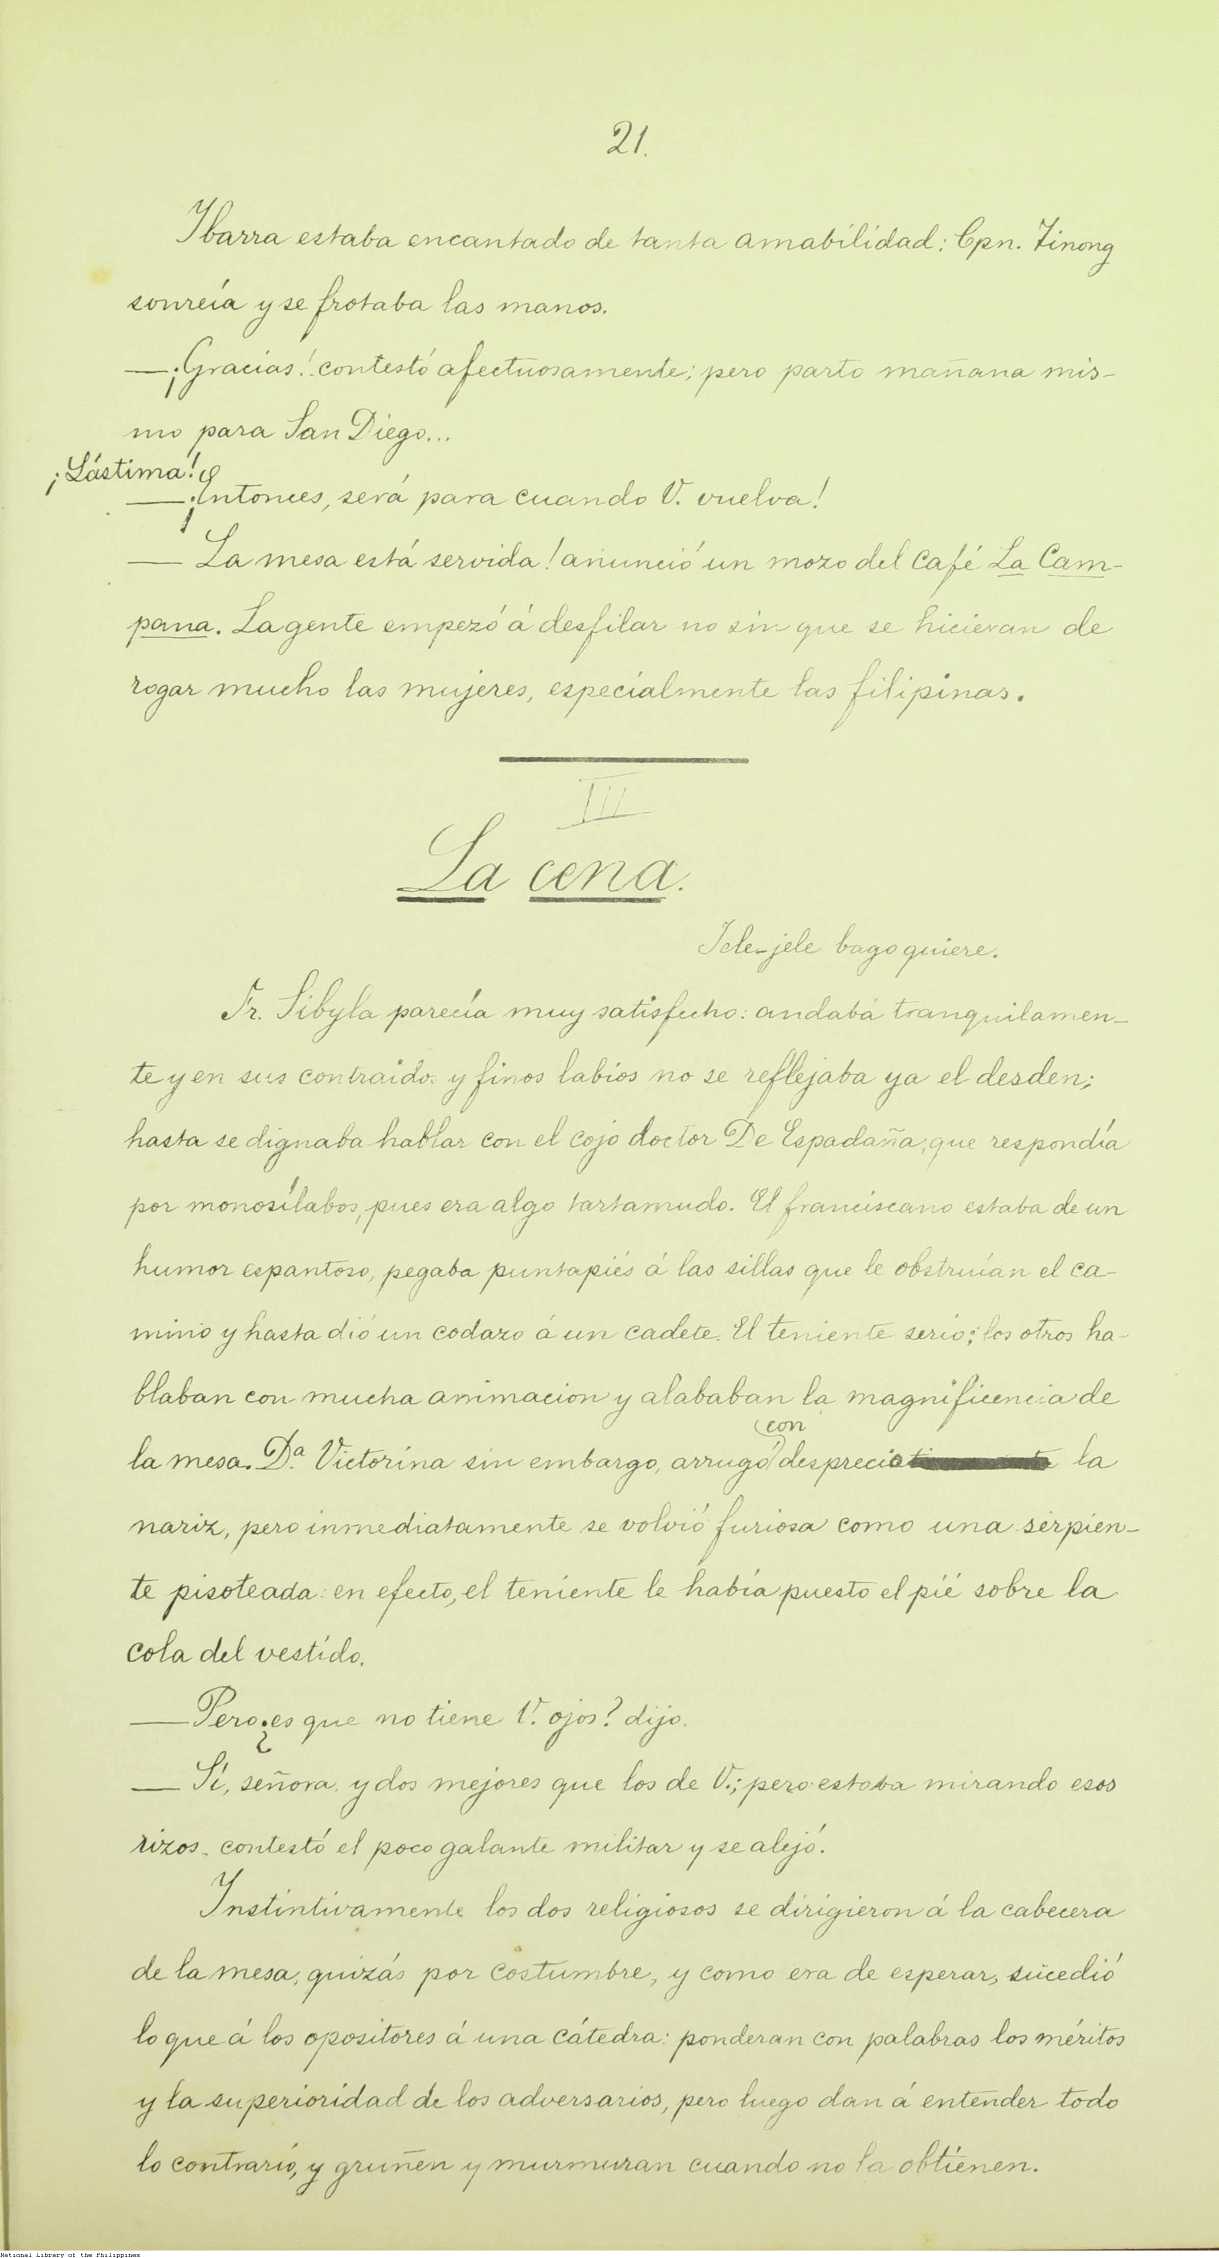 21.
Ibarra estaba encantado de tanta amabilidad: Cpn. Tinong
sonreía y se frotaba las manos.
—¡Gracias! contestó afectuosamente; pero parto mañana mis-
mo para San Diego...
¡Lástima! e
—¡Entonces, será para cuando V. vuelva!
— La mesa está servida! anunció un mozo del café La Cam-
pana. La gente empezó á desfilar no sin que se hicieran de
rogar mucho las mujeres, especialmente las filipinas.
III
La cena.
Jele-jele bago quiere.
Fr. Sibyla parecía muy satisfecho: andaba tranquilamen-
te y en sus contraidos y finos labios no se reflejaba ya el desden;
hasta se dignaba hablar con el cojo doctor De Espadaña, que respondía
por monosílabos, pues era algo tartamudo. El franciscano estaba de un
humor espantoso, pegaba puntapiés á las sillas que le obstruían el ca-
mino y hasta dió un codazo á un cadete. El teniente serio; los otros ha-
blaban con mucha animacion y alababan la magnificencia de
con
la mesa. D.ª Victorina sin embargo, arrugó desprecio la
nariz, pero inmediatamente se volvió furiosa como una serpien-
te pisoteada: en efecto, el teniente le había puesto el pié sobre la
cola del vestido.
— Pero ¿es que no tiene V. ojos? dijo.
— Sí, señora, y dos mejores que los de V.; pero estaba mirando esos
rizos, contestó el poco galante militar y se alejó.
Instintivamente los dos religiosos se dirigieron á la cabecera
de la mesa, quizás por costumbre, y como era de esperar, sucedió
lo que á los opositores á una cátedra: ponderan con palabras los méritos
y la superioridad de los adversarios, pero luego dan á entender todo
lo contrario, y gruñen y murmuran cuando no la obtienen.
National Library of the Philippines